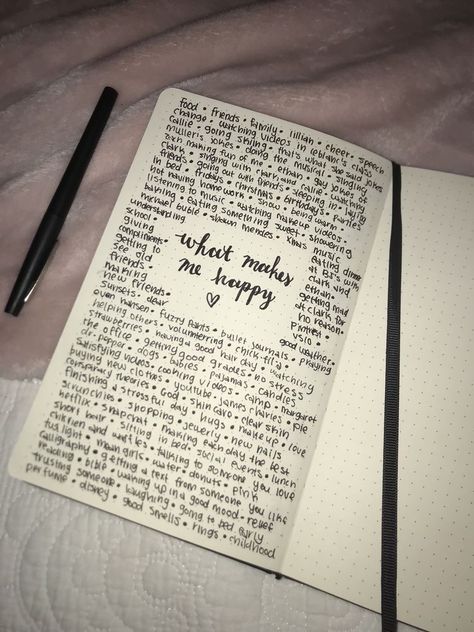 food • friends • family • lillian • cheer • speech
change • watching videos in leblanc's class
callie • going skiing • that's what she said jokes
muller's jokes • doing the musical • singing
zach making fun of me • ethan • gay jokes of
clark • singing with clark and callie • watching
friends • going out with friends • sleeping in • laying
in bed • fridays • christmas • birthdays • parties
not having homework • snow • being warm
listening to music • watching makeup videos •
baking • eating something sweet • showering
michael buble • shawn mendes • xmas music
understanding
school •
giving
compliments
getting to
see old
friends •
making
new friends •
what makes
me happy
eating dinner
at BJ's with
clark and
ethan •
getting mad
at clark for
no reason •
pinterest
vsco •
good weather •
sunsets • dear
evan hansen • fuzzy pants • bullet journals • praying
helping others • volunteering • chick-fil-a
strawberries • having a good hair day • watching
the office • getting good grades • no stress
dr. pepper • dogs • babies • pajamas • candles
satisfying videos • cooking videos • camp • margaret
buying new clothes • youtube • james charles • joe
conspiracy theories • God • skin care • clear skin
finishing a stressful day • hugs • makeup • love
scrunchies • shopping • jewelry • new nails
netflix • snapchat • making each day the best
short hair • sitting in bed • social events • lunch
chicken and waffles • talking to someone you love
tus light • mean girls • water • donuts • pink
calligraphy • getting a text from someone you like
reading • bible • waking up in a good mood • relief
trusting someone • laughing • going to bed early
perfume • disney • good smells • rings • childhood